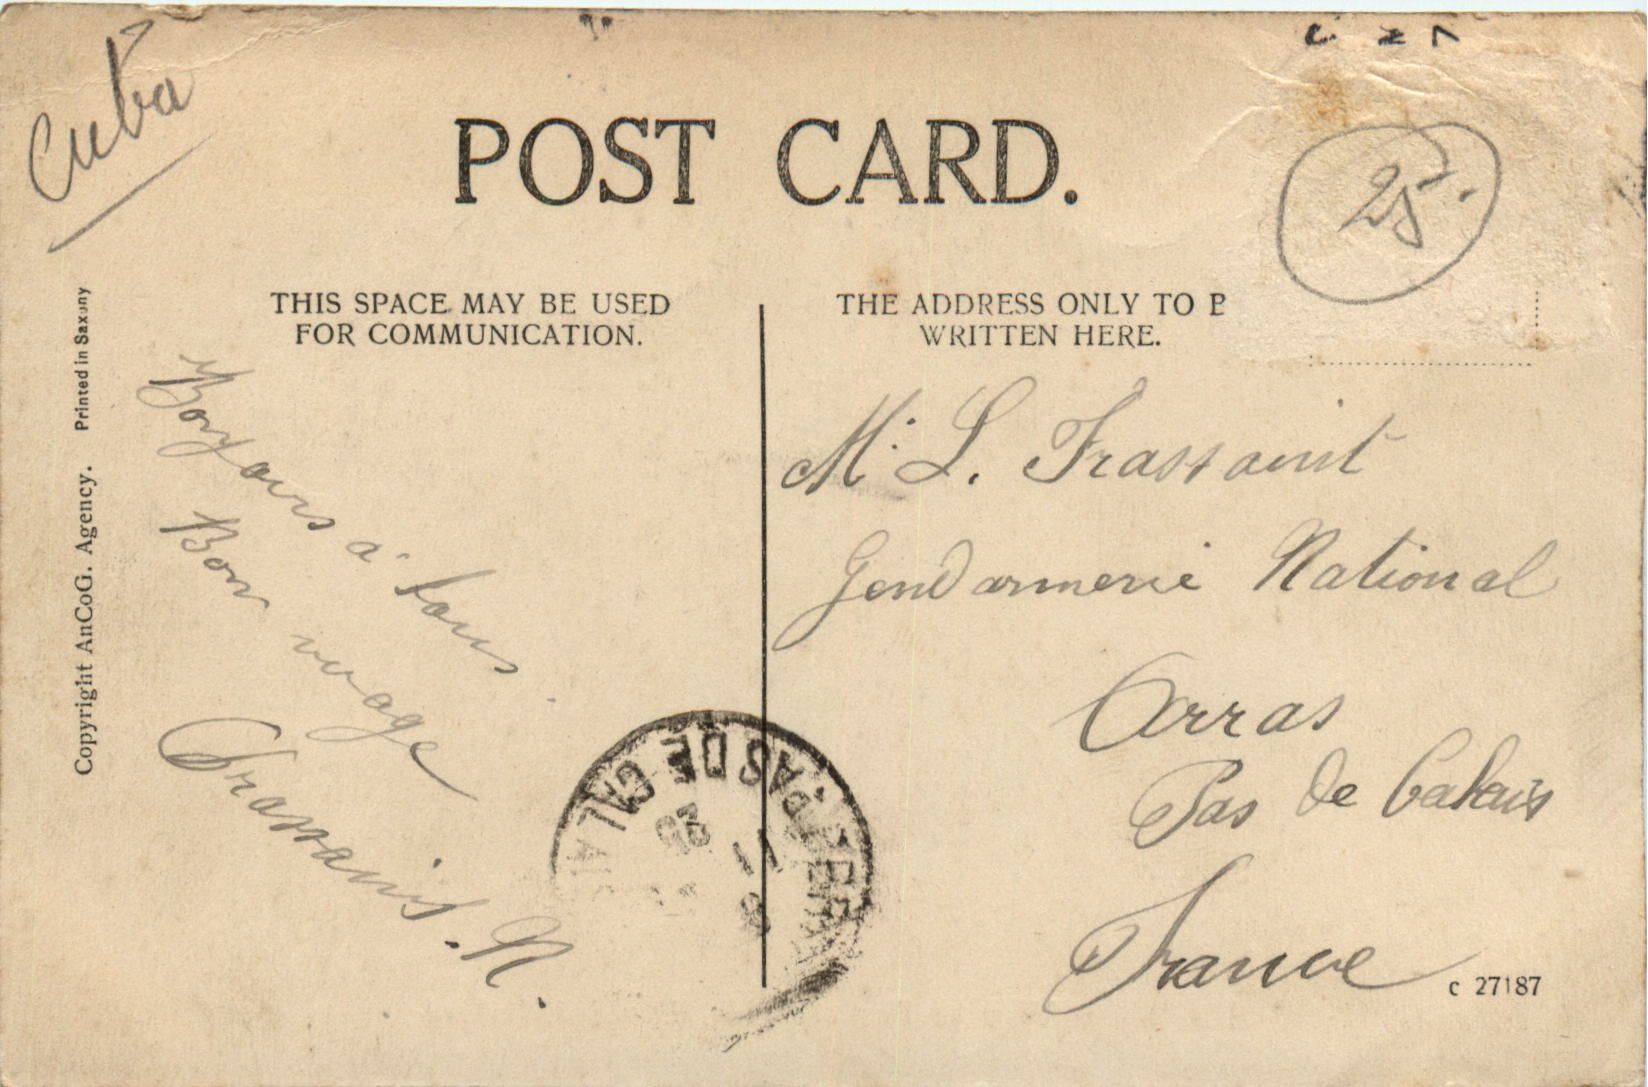 Cuba
POST CARD.
25.
THIS SPACE MAY BE USED
FOR COMMUNICATION.
THE ADDRESS ONLY TO B
WRITTEN HERE.
Copyright AnCoG. Agency. Printed in Saxony
Bonjours a tous.
Bon voage
Frassaint. N.
Mr. L. Frassaint
Gendarmerie National
Arras
Pas de Calais
France
PAS DE CALAIS
c 27187